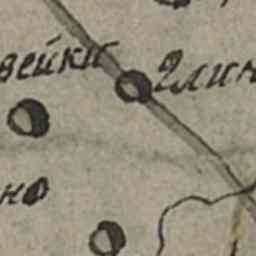 вейки
Глин
но